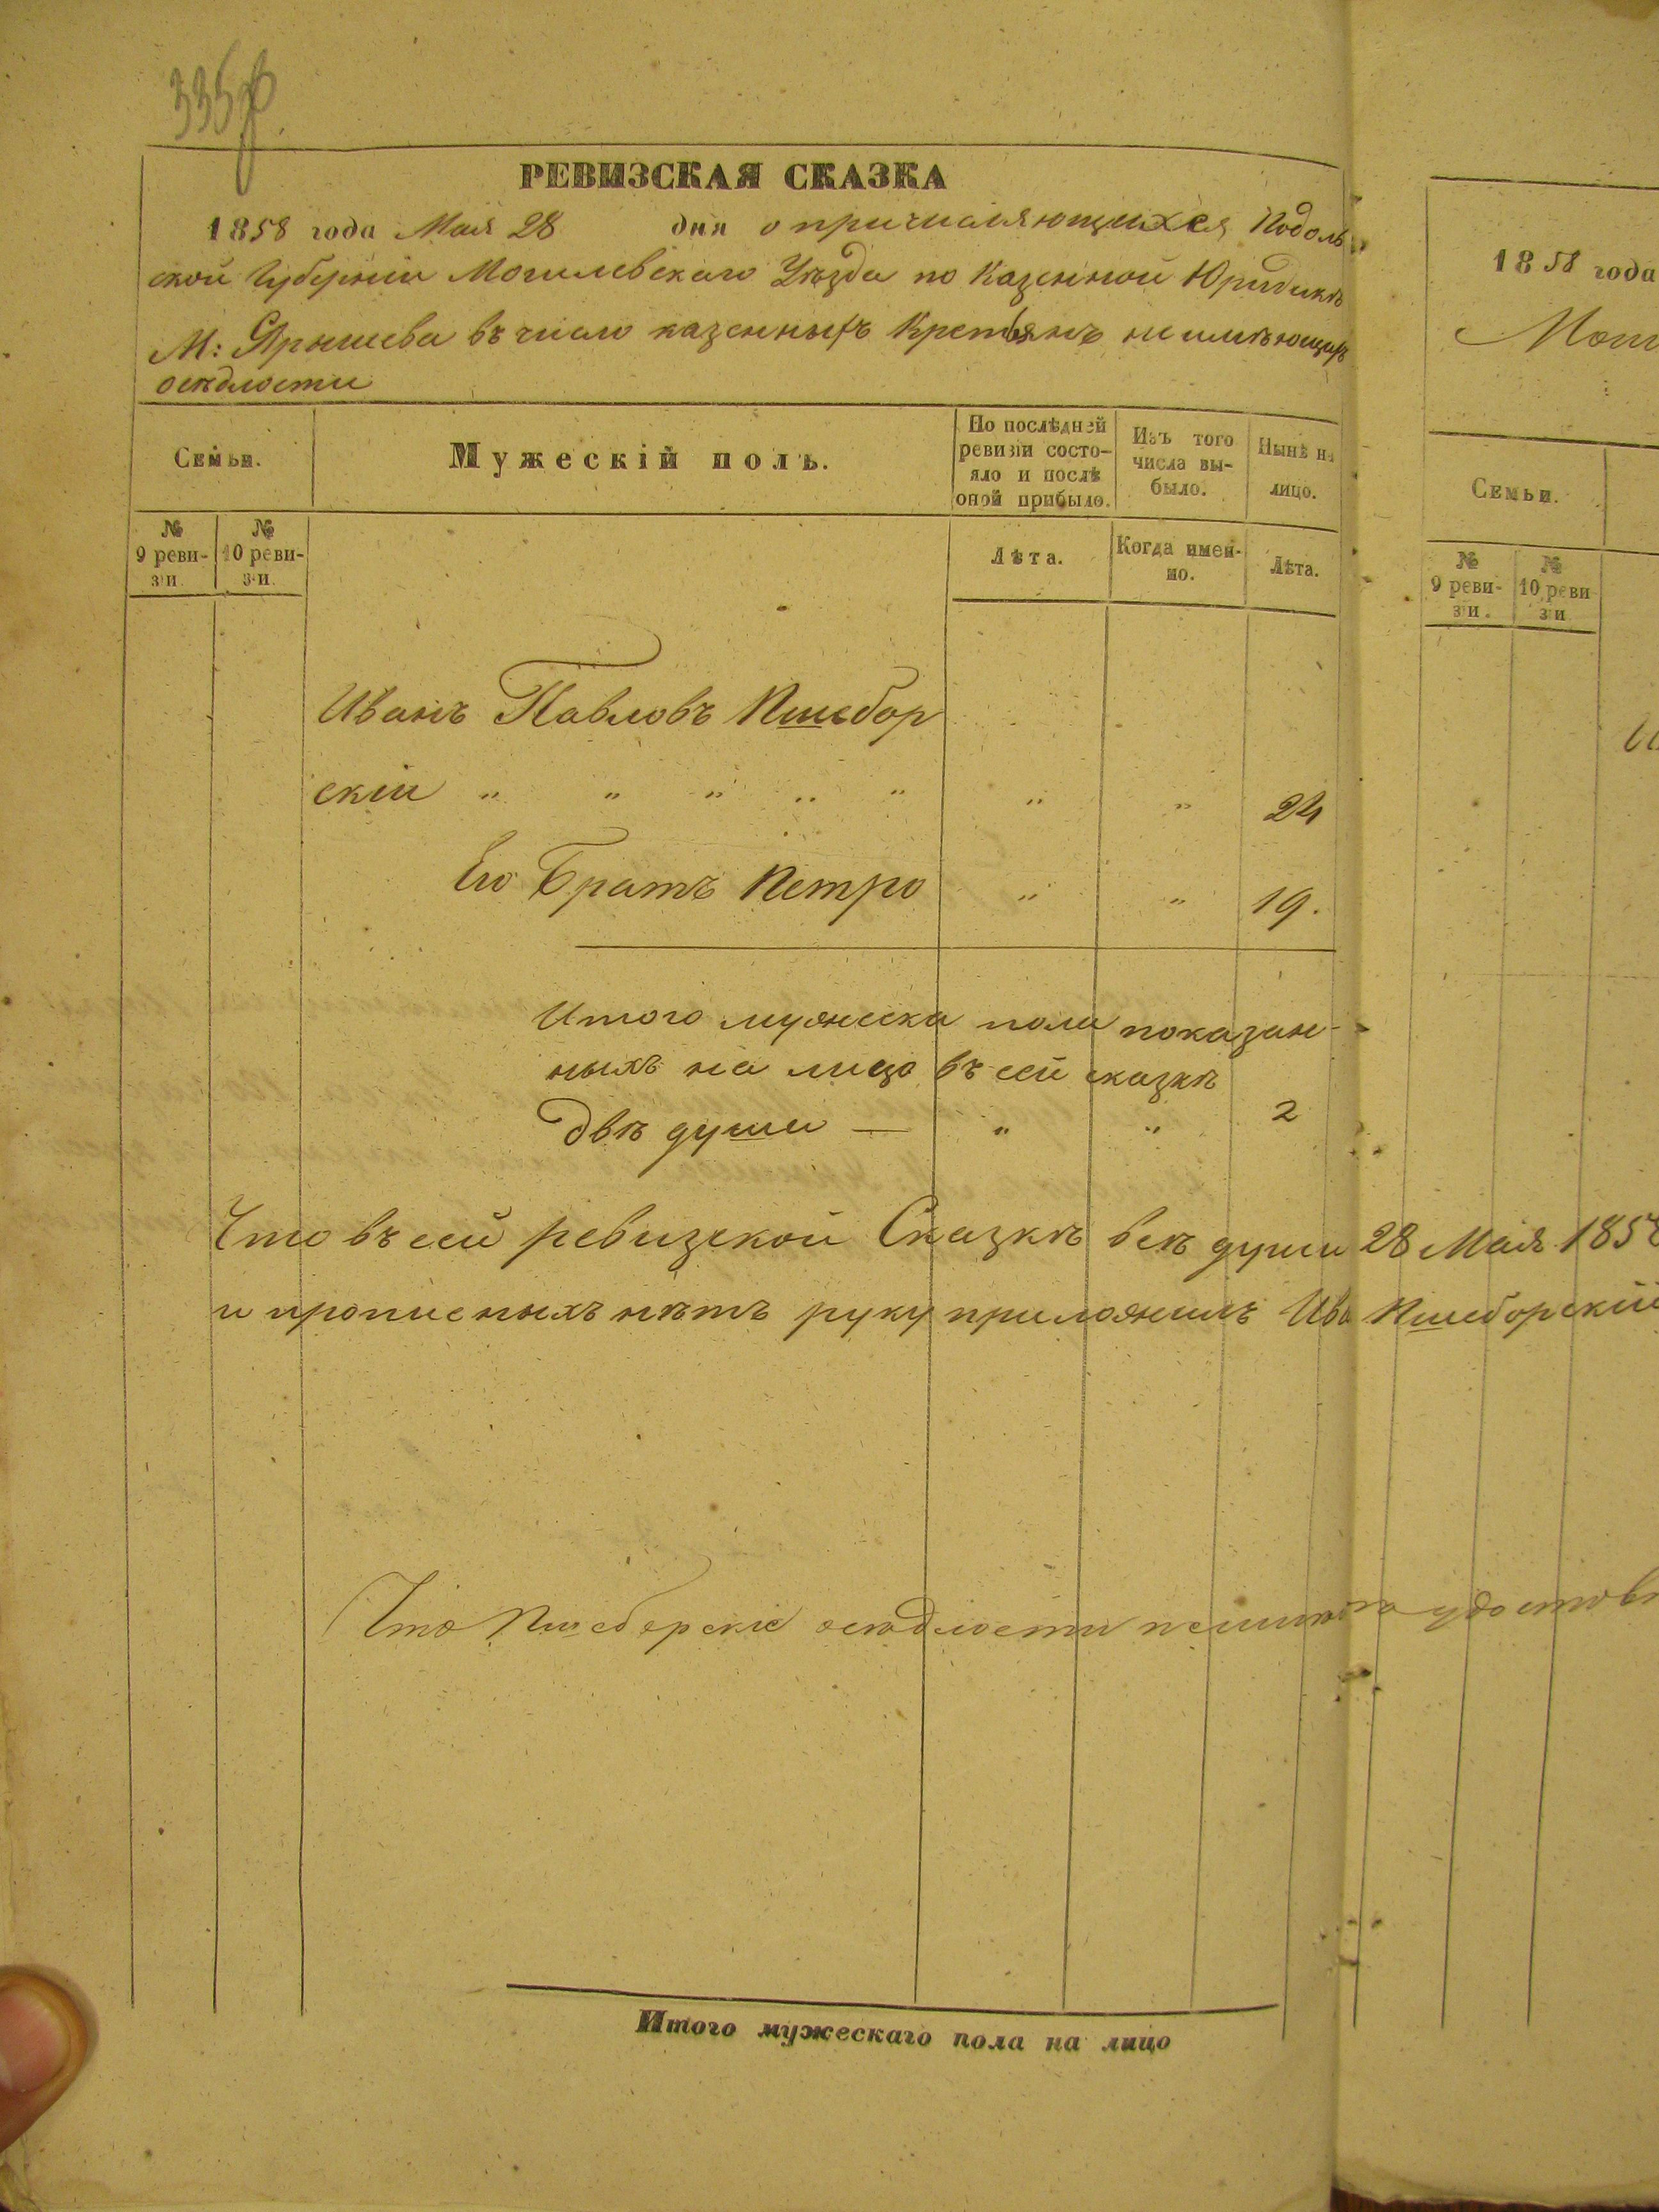 335
РЕВИЗСКАЯ СКАЗКА
1858 года Мая 28 дня о причисляющихся Подоль
ской Губерніи Могилевскаго Уѣзда по Казенной Юридикѣ
М: Ярышева въ число казенныхъ Крестьянъ не имѣющихъ
осѣдлости
Семьи.
Мужескій полъ.
По послѣдней ревизіи состо-
яло и послѣ оной прибыло.
Изъ того числа вы-
было.
Нынѣ на лицо.
№ 9 реви-
зіи.
№ 10 реви-
зіи.
Лѣта.
Когда имен-
но.
Лѣта.
Иванъ Павловъ Пшебор
скій " " " " " " " 24
Его Братъ Петро " " 19.
Итого мужеска пола показан-
ныхъ на лицо въ сей сказкѣ
двѣ души — " " 2
Что въ сей ревизской Сказкѣ всѣ души 28 Мая 1858
и прописныхъ нѣтъ руку приложилъ Ива Пшеборскій
Что Пшеборскіе осѣдлости
Итого мужескаго пола на лицо
1858 года
Семьи.
№ 9 реви-
зіи.
№ 10 реви
зіи